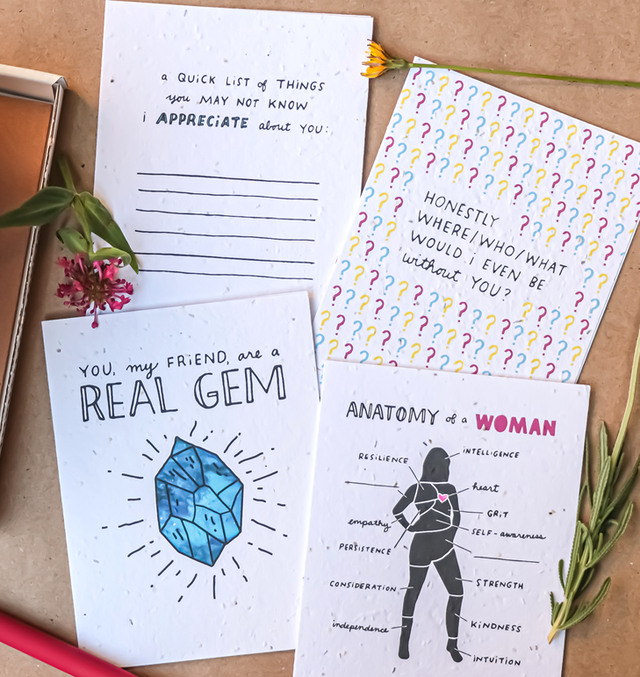 a QUICK LIST of THINGS
you MAY NOT KNOW
i APPRECiATE about YOU:
HONESTLY
WHERE/WHO/WHAT
WOULD i EVEN BE
without YOU?
YOU, my FRiEND, are a
REAL GEM
ANATOMY of a WOMAN
RESILIENCE
INTELLIGENCE
heart
GRiT
empathy
SELF-awareness
PERSISTENCE
CONSIDERATION
STRENGTH
independence
KiNDNESS
INTUITION